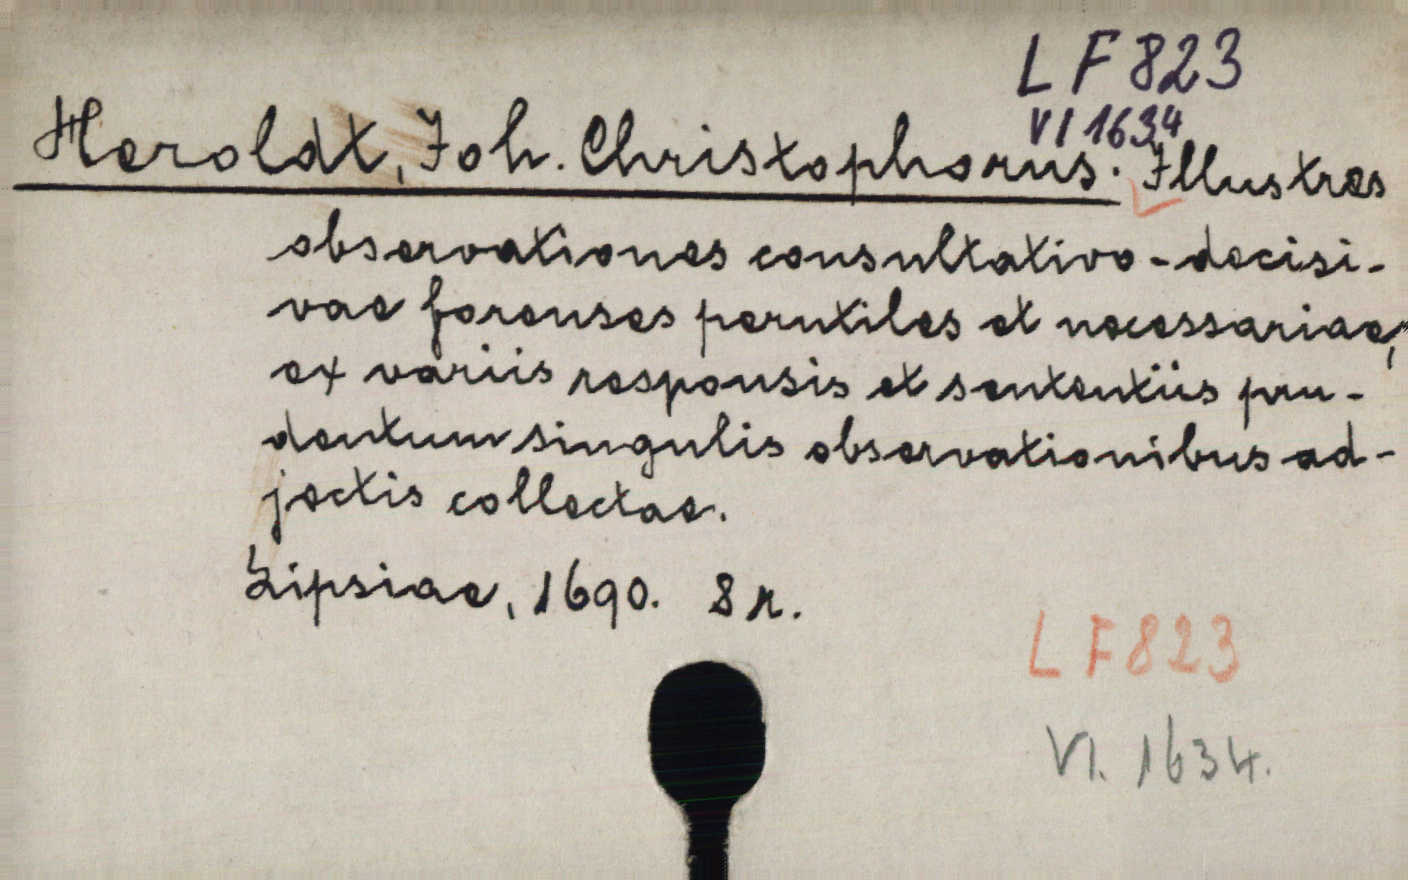 LF 823
VI 1634
Heroldt, Joh. Christophorus. Illustres
observationes consultativo-decisi-
vae forenses perutiles et necessariae,
ex variis responsis et sententiis pru-
dentum singulis observationibus ad-
jectis collectae.
Lipsiae, 1690. 8 r.
LF 823
VI. 1634.